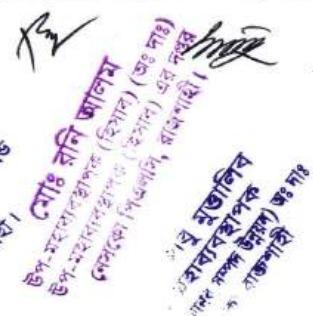 মোঃ রনি আলম
উপ-মহাব্যবস্থাপক (হিসাব) (অঃ দাঃ)
উপ-মহাব্যবস্থাপক (হিসাব) এর দপ্তর
নেসকো পিএলসি, রাজশাহী।
মুত্তালিব
হাব্যবস্থাপক
সম্পদ উন্নয়ন) অঃ দাঃ
রাজশাহী